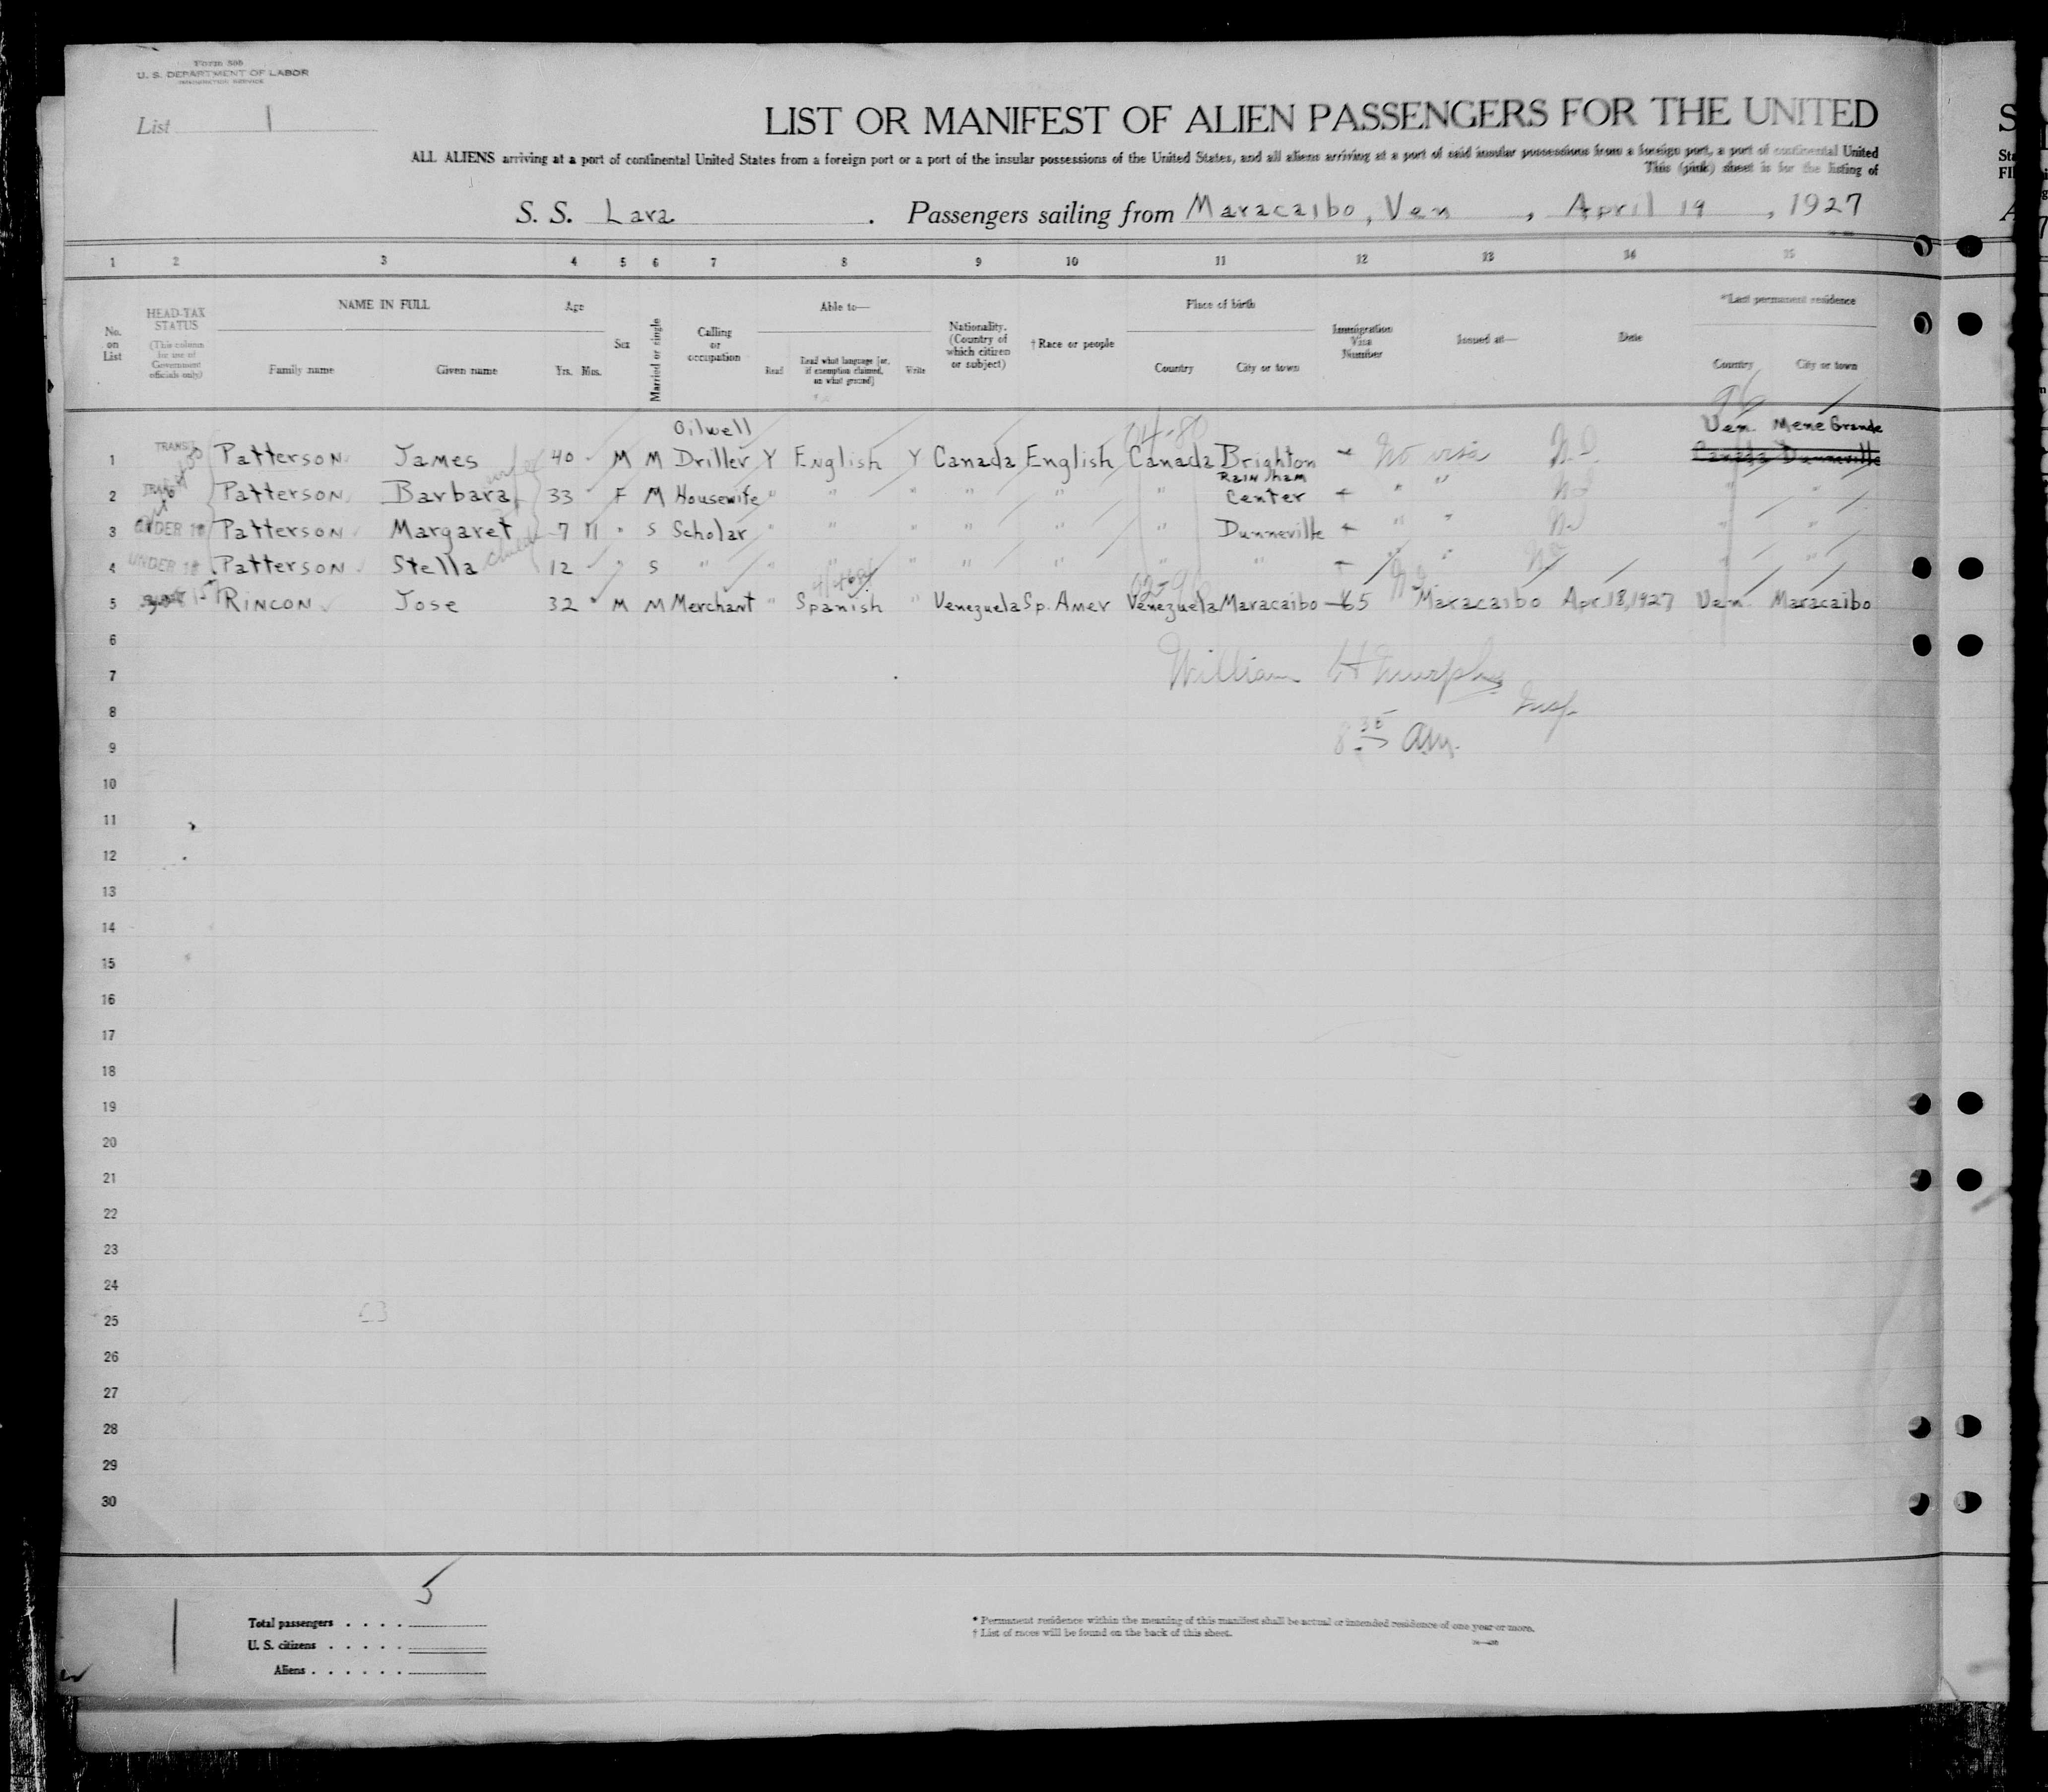 Form 500
U. S. DEPARTMENT OF LABOR
IMMIGRATION SERVICE
List 1
LIST OR MANIFEST OF ALIEN PASSENGERS FOR THE UNITED
ALL ALIENS arriving at a port of continental United States from a foreign port or a port of the insular possessions of the United States, and all aliens arriving at a port of said insular possessions from a foreign port, a port of continental United
This (pink) sheet is for the listing of
S. S. Lara . Passengers sailing from Maracaibo, Ven , April 19 , 1927
1 2 3 4 5 6 7 8 9 10 11 12 13 14 15
No. on List
HEAD-TAX STATUS
(This column for use of Government officials only)
NAME IN FULL
Family name Given name
Age
Yrs. Mos.
Sex
Married or single
Calling or occupation
Able to—
Read Read what language [or, if exemption claimed, on what ground] Write
Nationality. (Country of which citizen or subject)
† Race or people
Place of birth
Country City or town
Immigration Visa Number
Issued at—
Date
*Last permanent residence
Country City or town
96
1 TRANSIT Patterson James 40 M M Oilwell Driller Y English Y Canada English Canada Brighton No visa Ven. Mene Grande Canada Dunneville
2 Patterson Barbara wife 33 F M Housewife " " " " " " Rainham Center " " " "
3 UNDER 16 Patterson Margaret 7 11 " S Scholar " " " " " " Dunneville " " " "
4 UNDER 16 Patterson Stella child 12 " S " " " " " " " " " " " "
5 Rincon Jose 32 M M Merchant " Spanish " Venezuela Sp. Amer Venezuela Maracaibo 65 Maracaibo Apr. 18, 1927 Ven Maracaibo
6
7 William H Murphy
8 Insp.
9 8 35 am.
10
11
12
13
14
15
16
17
18
19
20
21
22
23
24
25
26
27
28
29
30
5
Total passengers . . . .
U. S. citizens . . . . .
Aliens . . . . . .
* Permanent residence within the meaning of this manifest shall be actual or intended residence of one year or more.
† List of races will be found on the back of this sheet.